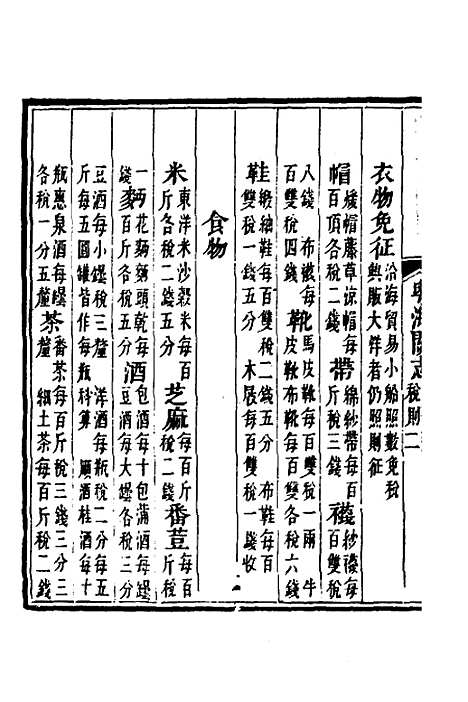 粤海關志 稅則二
衣物免征 沿海貿易小船照數免稅
與販大佯者仍照則征
帽 緩帽藤草涼帽每
百頂各稅二錢
帶 綿紗帶每百
斤稅三錢
襪 紗襪每
百雙稅
八錢 布襪每
百雙稅四錢
靴 馬皮靴每百雙稅一兩 牛
皮靴布靴每百雙各稅六錢
鞋 緞紬鞋每百雙稅二錢五分 布鞋每百
雙稅一錢五分 木屐每百雙稅一錢收
食物
米 東洋米沙穀米每百
斤各稅二錢五分
芝麻 每百斤
稅二錢
番荳 每百
斤稅
一兩花麵麵頭乾每
錢
麥 百斤各稅五分
酒 包酒每十包滿酒每埕
豆酒每大埕各稅三分
豆酒每小埕稅三釐 洋酒每瓶稅二分每五
斤每五圓罐昔作每瓶科算 順酒桂酒每十
瓶惠泉酒每埕
各稅一分五釐
茶 番茶每百斤稅三錢三分三
釐 細土茶每百斤稅二錢